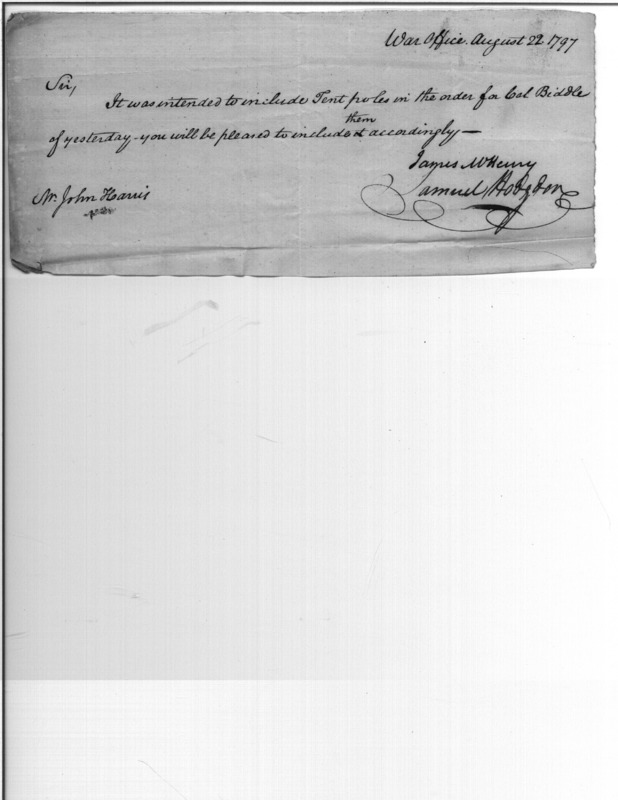 War Office. August 22 1797
Sir,
It was intended to include Tent poles in the order for Col Biddle
them
of yesterday - you will be pleased to include it accordingly —
James McHenry
Samuel Hodgdon
Mr. John Harris